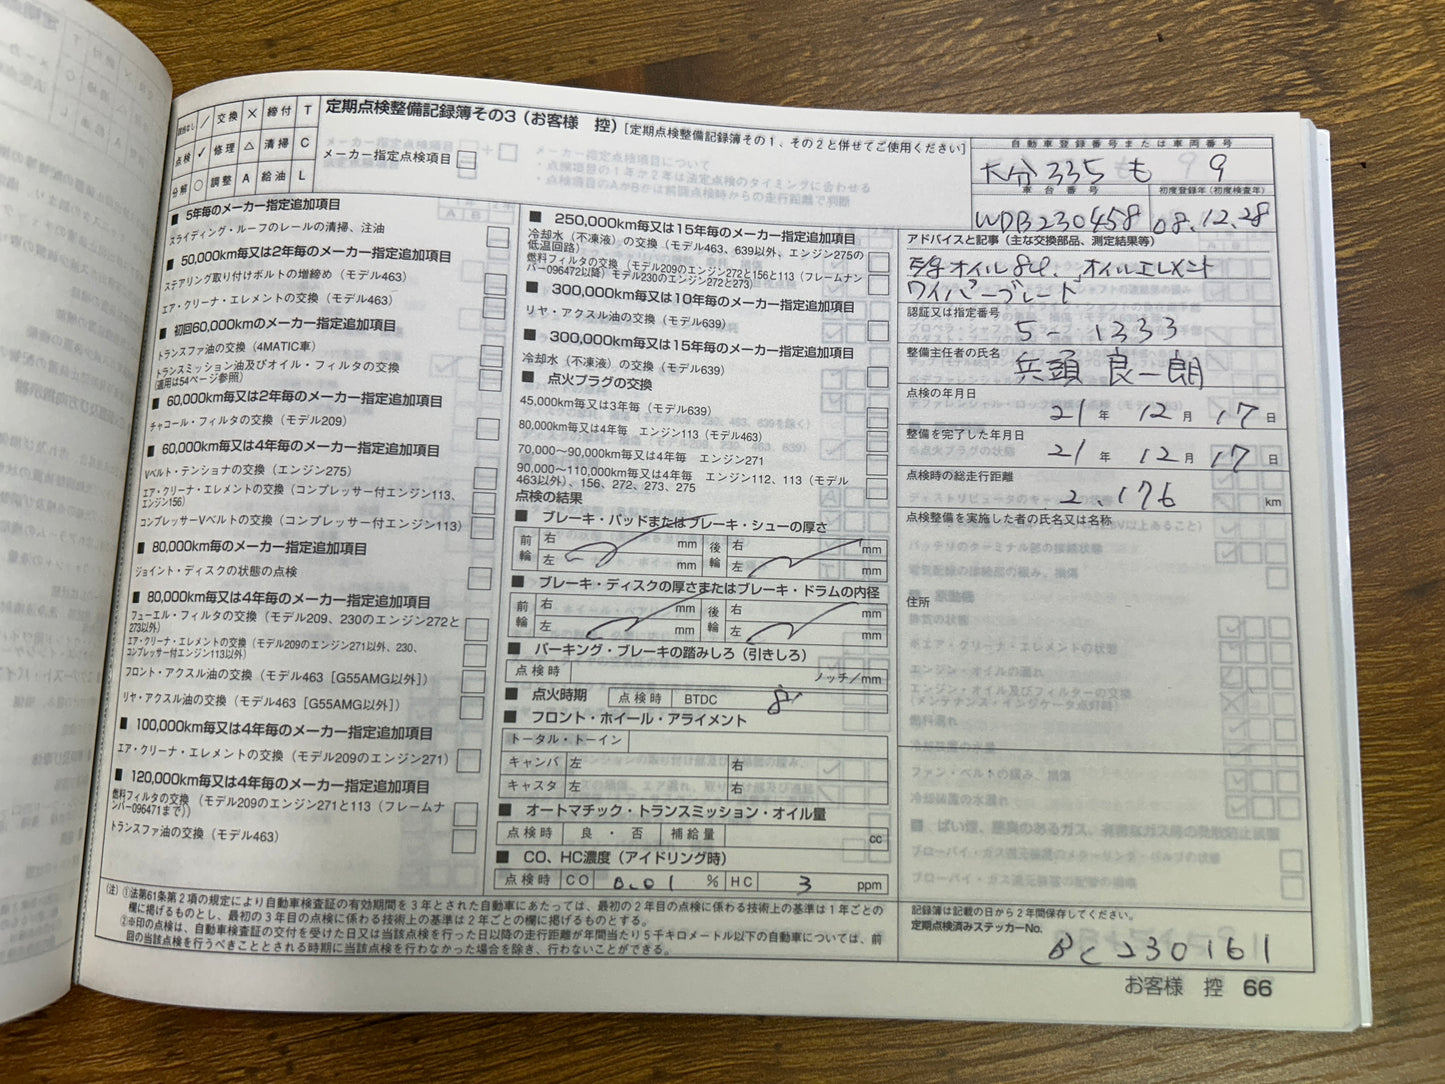 該当なし ／ 交換 × 締付 T
点検 ✓ 修理 △ 清掃 C
分解 ○ 調整 A 給油 L
定期点検整備記録簿その3（お客様 控）[定期点検整備記録簿その1、その2と併せてご使用ください]
メーカー指定点検項目
■ 5年毎のメーカー指定追加項目
スライディング・ルーフのレールの清掃、注油
■ 50,000km毎又は2年毎のメーカー指定追加項目
ステアリング取り付けボルトの増締め（モデル463）
エア・クリーナ・エレメントの交換（モデル463）
■ 初回60,000kmのメーカー指定追加項目
トランスファ油の交換（4MATIC車）
トランスミッション油及びオイル・フィルタの交換
（適用は54ページ参照）
■ 60,000km毎又は2年毎のメーカー指定追加項目
チャコール・フィルタの交換（モデル209）
■ 60,000km毎又は4年毎のメーカー指定追加項目
Vベルト・テンショナの交換（エンジン275）
エア・クリーナ・エレメントの交換（コンプレッサー付エンジン113、
エンジン156）
コンプレッサーVベルトの交換（コンプレッサー付エンジン113）
■ 80,000km毎のメーカー指定追加項目
ジョイント・ディスクの状態の点検
■ 80,000km毎又は4年毎のメーカー指定追加項目
フューエル・フィルタの交換（モデル209、230のエンジン272と
273以外）
エア・クリーナ・エレメントの交換（モデル209のエンジン271以外、230、
コンプレッサー付エンジン113以外）
フロント・アクスル油の交換（モデル463［G55AMG以外］）
リヤ・アクスル油の交換（モデル463［G55AMG以外］）
■ 100,000km毎又は4年毎のメーカー指定追加項目
エア・クリーナ・エレメントの交換（モデル209のエンジン271）
■ 120,000km毎又は4年毎のメーカー指定追加項目
燃料フィルタの交換（モデル209のエンジン271と113（フレームナ
ンバー096471まで））
トランスファ油の交換（モデル463）
■ 250,000km毎又は15年毎のメーカー指定追加項目
冷却水（不凍液）の交換（モデル463、639以外、エンジン275の
低温回路）
燃料フィルタの交換（モデル209のエンジン272と156と113（フレームナン
バー096472以降）モデル230のエンジン272と273）
■ 300,000km毎又は10年毎のメーカー指定追加項目
リヤ・アクスル油の交換（モデル639）
■ 300,000km毎又は15年毎のメーカー指定追加項目
冷却水（不凍液）の交換（モデル639）
■ 点火プラグの交換
45,000km毎又は3年毎（モデル639）
80,000km毎又は4年毎 エンジン113（モデル463）
70,000〜90,000km毎又は4年毎 エンジン271
90,000〜110,000km毎又は4年毎 エンジン112、113（モデル
463以外）、156、272、273、275
点検の結果
■ ブレーキ・パッドまたはブレーキ・シューの厚さ
前輪 右 mm 後輪 右 mm
左 mm 左 mm
■ ブレーキ・ディスクの厚さまたはブレーキ・ドラムの内径
前輪 右 mm 後輪 右 mm
左 mm 左 mm
■ パーキング・ブレーキの踏みしろ（引きしろ）
点検時 ノッチ/mm
■ 点火時期 点検時 BTDC 8°
■ フロント・ホイール・アライメント
トータル・トーイン
キャンバ 左 右
キャスタ 左 右
■ オートマチック・トランスミッション・オイル量
点検時 良・否 補給量 cc
■ CO、HC濃度（アイドリング時）
点検時 CO 0.01 % HC 3 ppm
自動車登録番号または車両番号
大分 335 も 9
車台番号 初度登録年（初度検査年）
WDB230458 08.12.28
アドバイスと記事（主な交換部品、測定結果等）
オイル8L、オイルエレメント
ワイパーブレード
認証又は指定番号
5-1333
整備主任者の氏名
兵頭 良一朗
点検の年月日
21 年 12 月 17 日
整備を完了した年月日
21 年 12 月 17 日
点検時の総走行距離
2,176 km
点検整備を実施した者の氏名又は名称
住所
記録簿は記載の日から2年間保存してください。
定期点検済みステッカーNo.
BC230161
（注）①法第61条第2項の規定により自動車検査証の有効期間を3年とされた自動車にあたっては、最初の2年目の点検に係わる技術上の基準は1年ごとの
欄に掲げるものとし、最初の3年目の点検に係わる技術上の基準は2年ごとの欄に掲げるものとする。
②※印の点検は、自動車検査証の交付を受けた日又は当該点検を行った日以降の走行距離が年間当たり5千キロメートル以下の自動車については、前
回の当該点検を行うべきこととされる時期に当該点検を行わなかった場合を除き、行わないことができる。
お客様 控 66